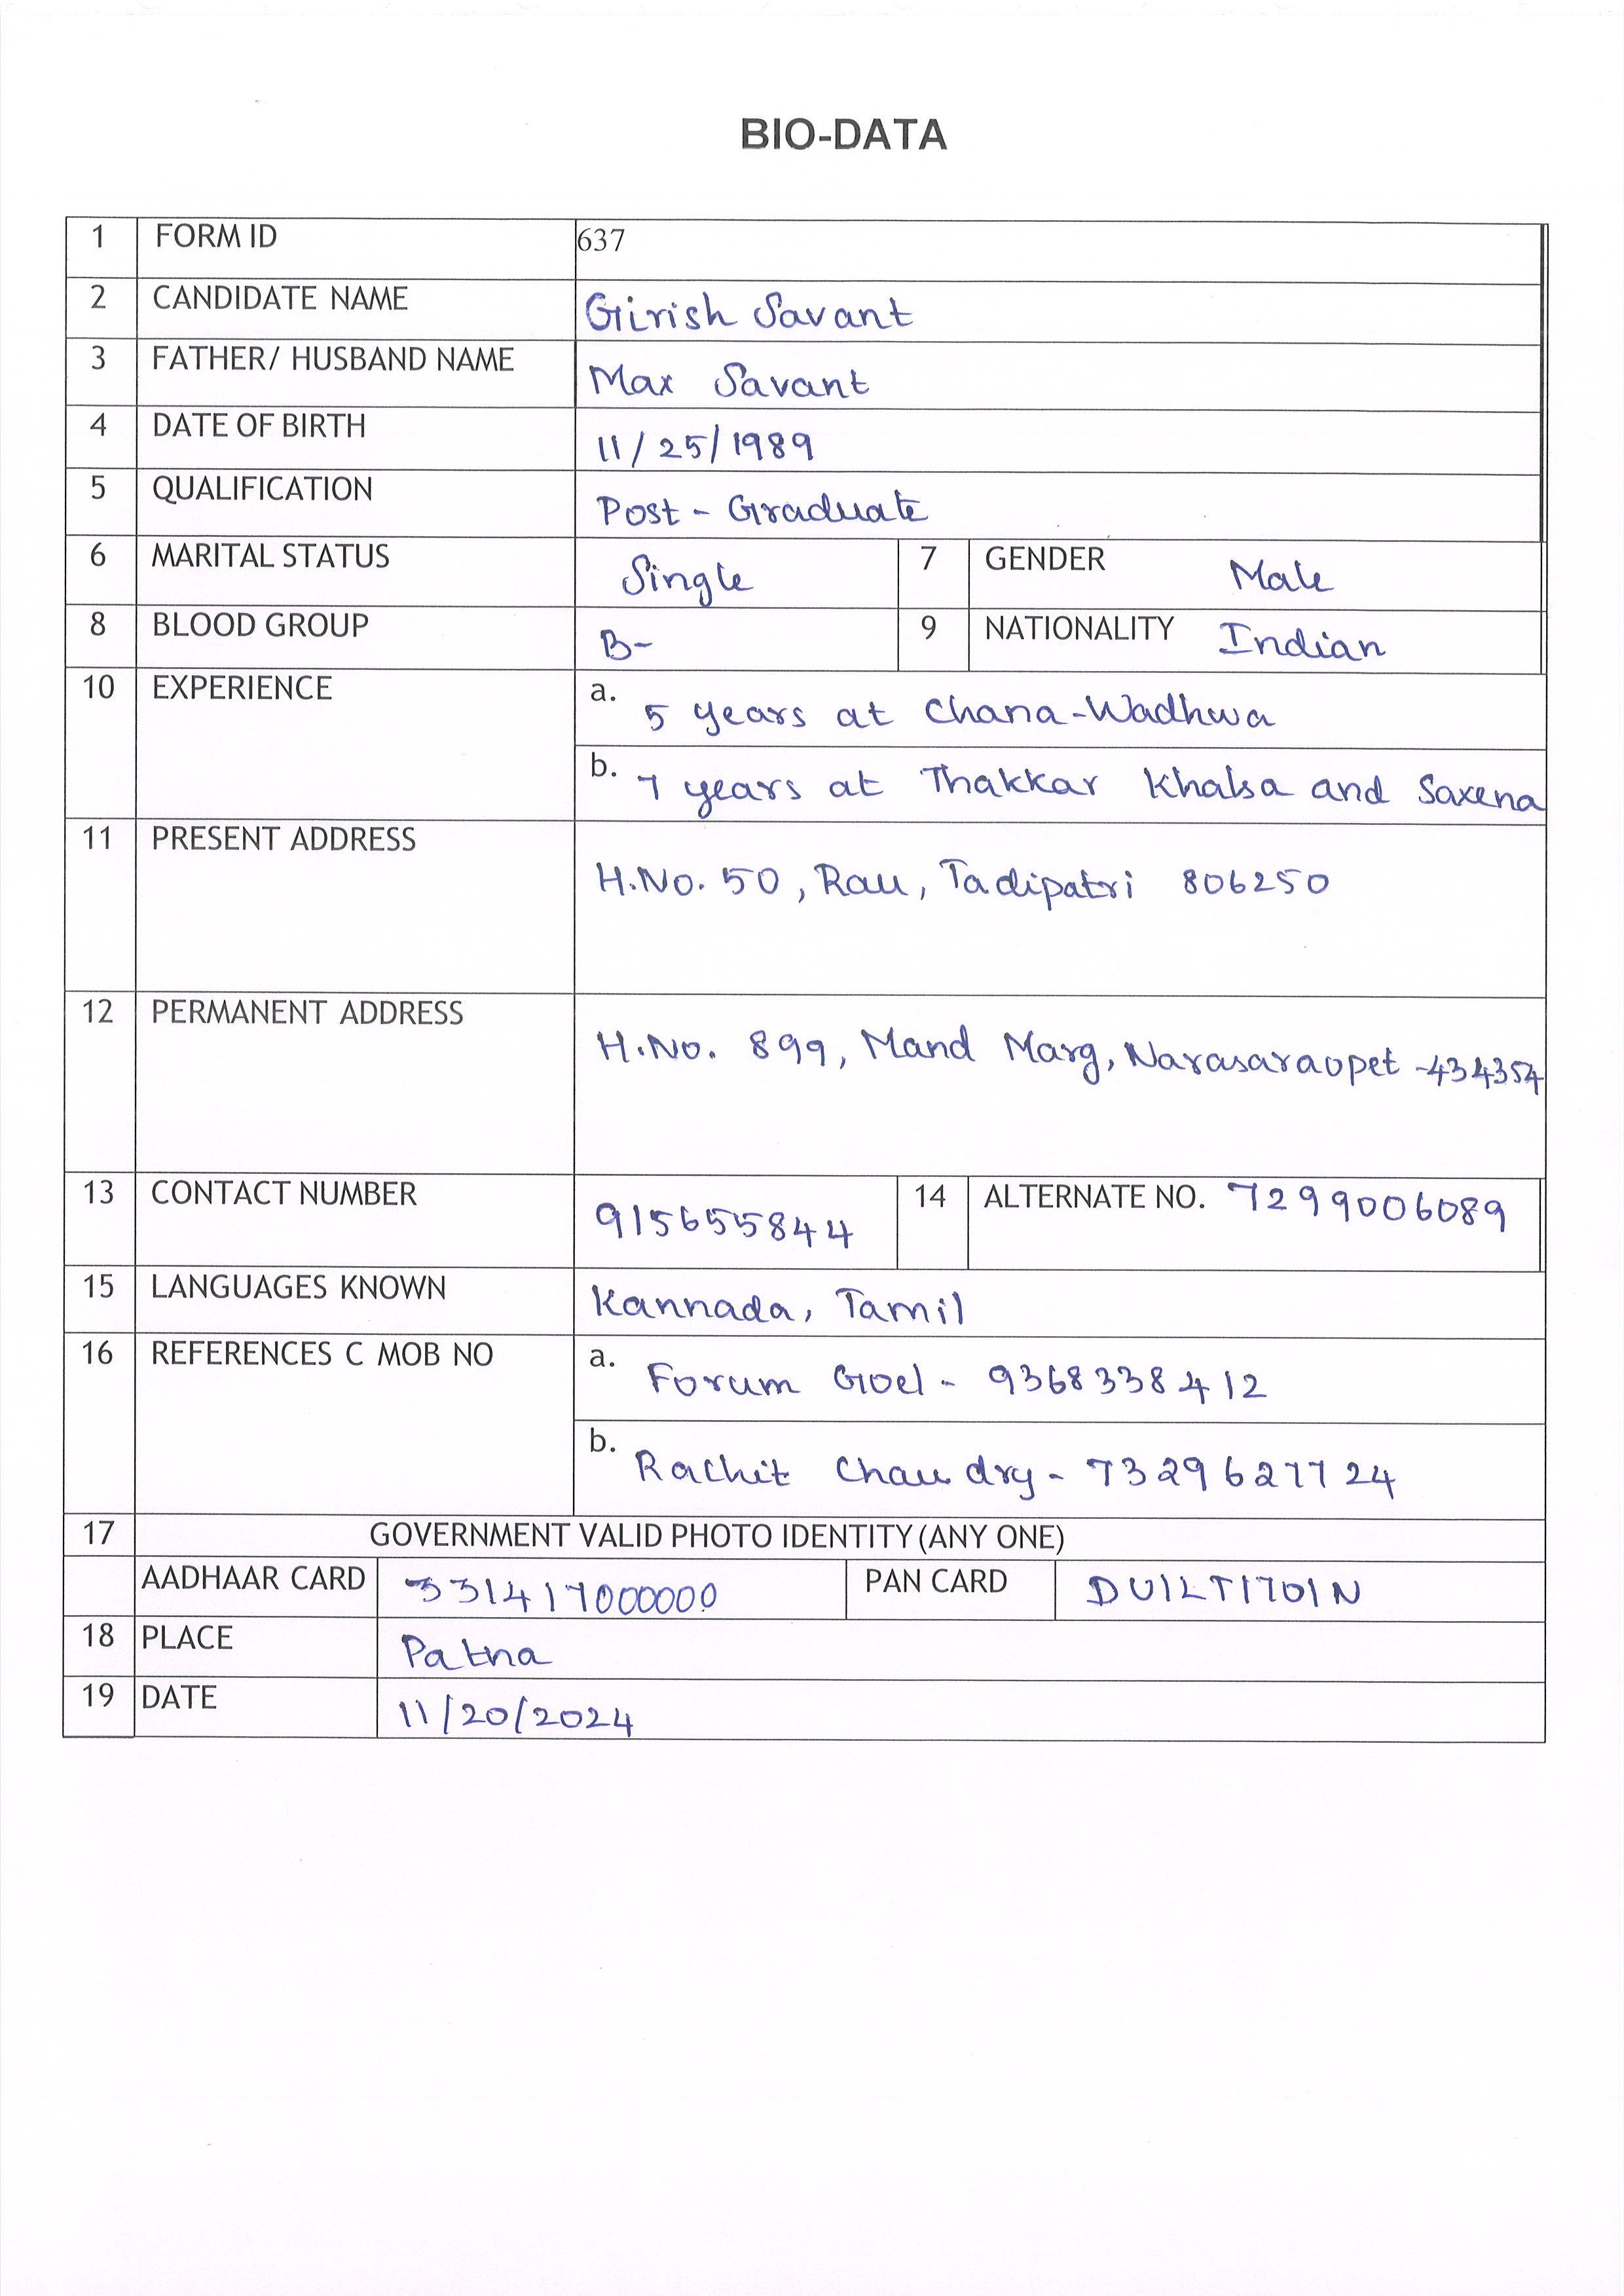 BIO-DATA
1 FORM ID 637
2 CANDIDATE NAME Girish Savant
3 FATHER/ HUSBAND NAME Max Savant
4 DATE OF BIRTH 11/25/1989
5 QUALIFICATION Post-Graduate
6 MARITAL STATUS Single 7 GENDER Male
8 BLOOD GROUP B- 9 NATIONALITY Indian
10 EXPERIENCE a. 5 years at Chana-Wadhwa
b. 7 years at Thakkar Khalsa and Saxena
11 PRESENT ADDRESS
H.No. 50, Rau, Tadipatri 806250
12 PERMANENT ADDRESS
H.No. 899, Mand Marg, Narasaraopet -434354
13 CONTACT NUMBER 915655844 14 ALTERNATE NO. 7299006089
15 LANGUAGES KNOWN Kannada, Tamil
16 REFERENCES C MOB NO a. Forum Goel - 9368338412
b. Rachit Chaudry - 7329627724
17 GOVERNMENT VALID PHOTO IDENTITY (ANY ONE)
AADHAAR CARD 331417000000 PAN CARD DUILT1701N
18 PLACE Patna
19 DATE 11/20/2024